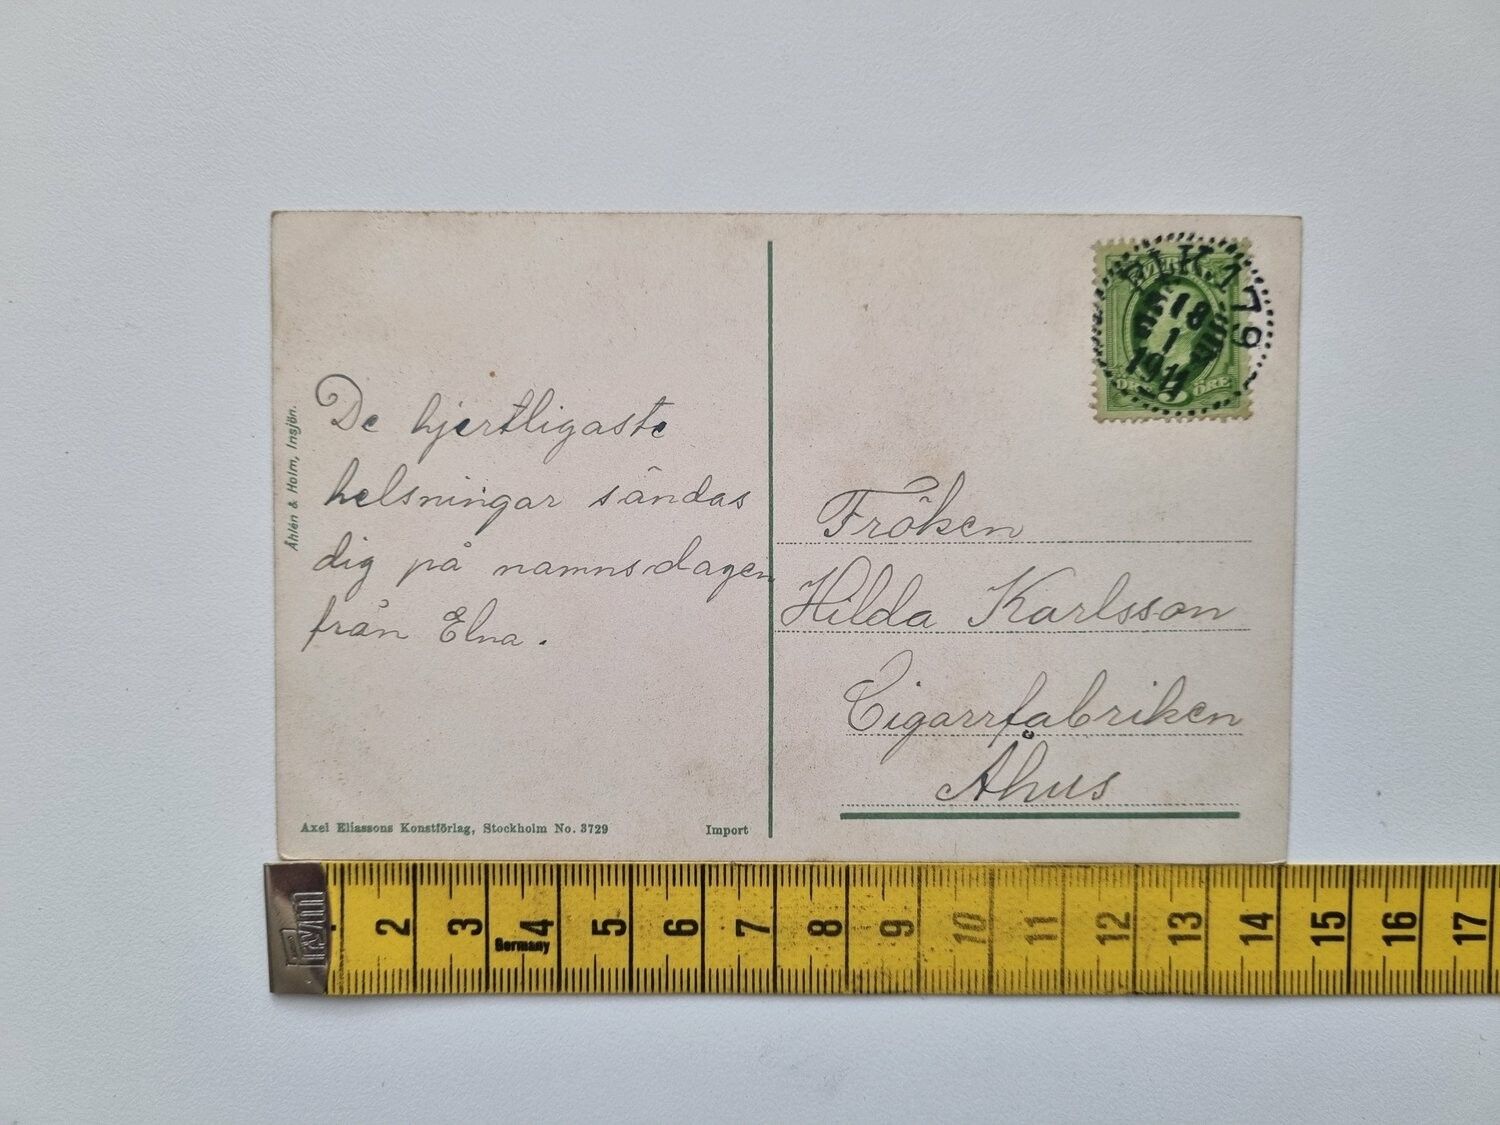 Åhlén & Holm, Insjön.
De hjertligaste
helsningar sändas
dig på namnsdagen
från Elna.
Axel Eliassons Konstförlag, Stockholm No. 3729
Import
PLK.179
18
1
1911
5
ÖRE
Fröken
Hilda Karlsson
Cigarrfabriken
Åhus
2 3 4 5 6 7 8 9 10 11 12 13 14 15 16 17
Germany